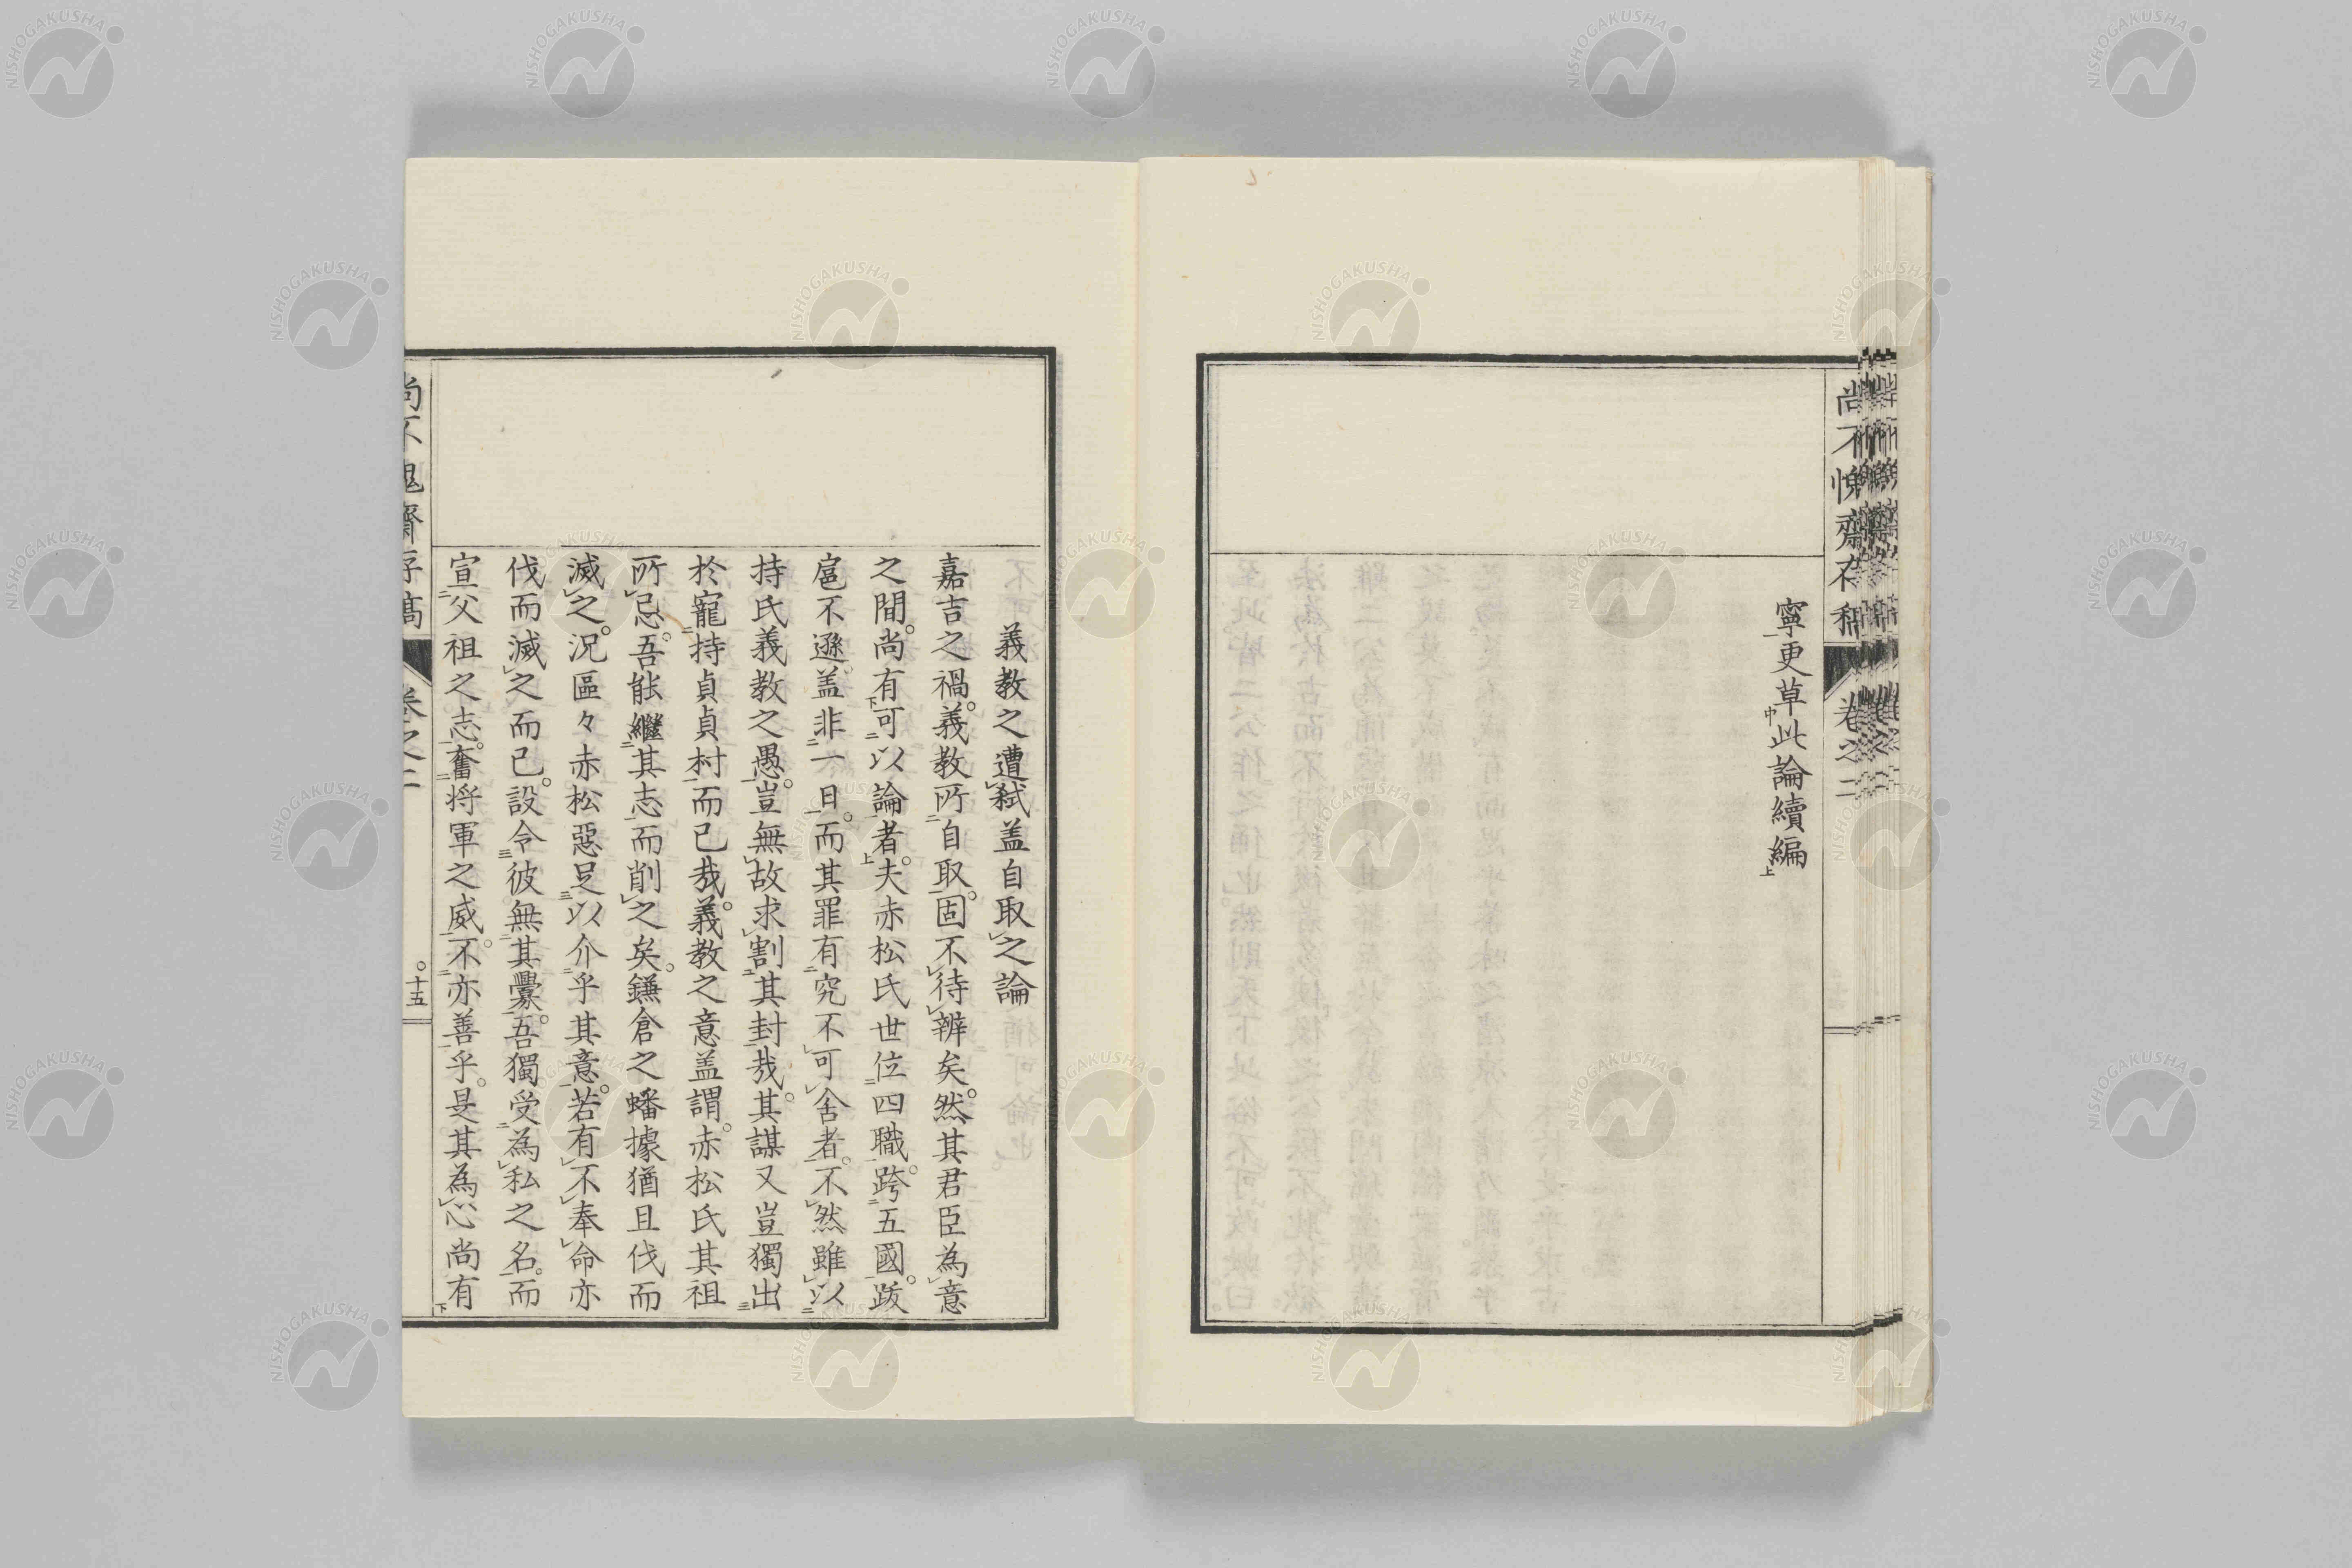 寧更草此論續編
義教之遭弑盖自取之論
嘉吉之禍。義教所自取。固不待辨矣。然其君臣為意
之間。尚有可以論者。夫赤松氏世位四職。跨五國。跋
扈不遜。盖非一日。而其罪有究不可舍者。不然雖以
持氏義教之愚。豈無故求割其封哉。其謀又豈獨出
於寵持貞貞村而已哉。義教之意盖謂。赤松氏其祖
所忌。吾能繼其志而削之矣。鎌倉之蟠據猶且伐而
滅之。況區々赤松惡足以介乎其意。若有不奉命亦
伐而滅之而已。設令彼無其釁。吾獨受為私之名。而
宣父祖之志。奮将軍之威。不亦善乎。是其為心尚有
卷之二
十五
卷之二
NISHOGAKUSHA